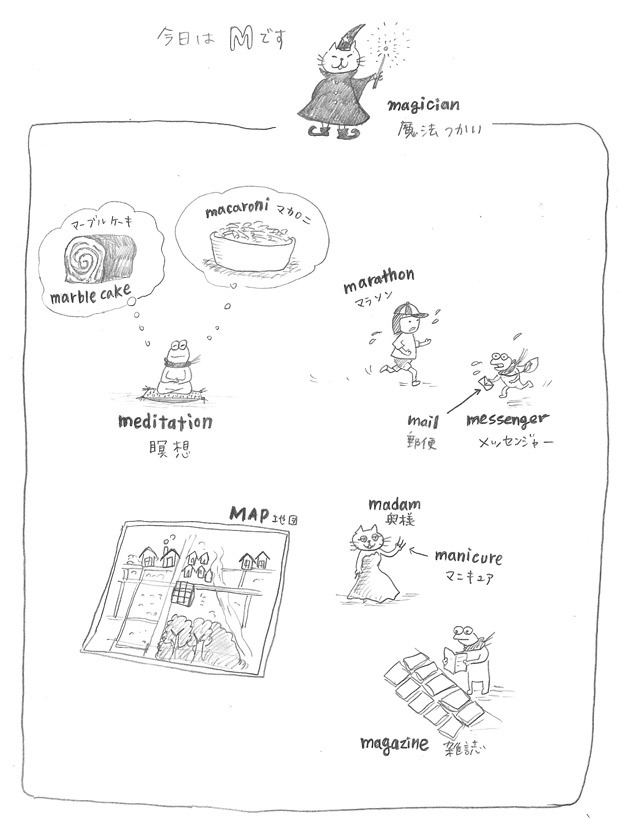 今日は Mです
magician
魔法つかい
macaroni マカロニ
マーブルケーキ
marble cake
marathon
マラソン
meditation
瞑想
mail
郵便
messenger
メッセンジャー
MAP 地図
madam
奥様
manicure
マニキュア
magazine 雑誌